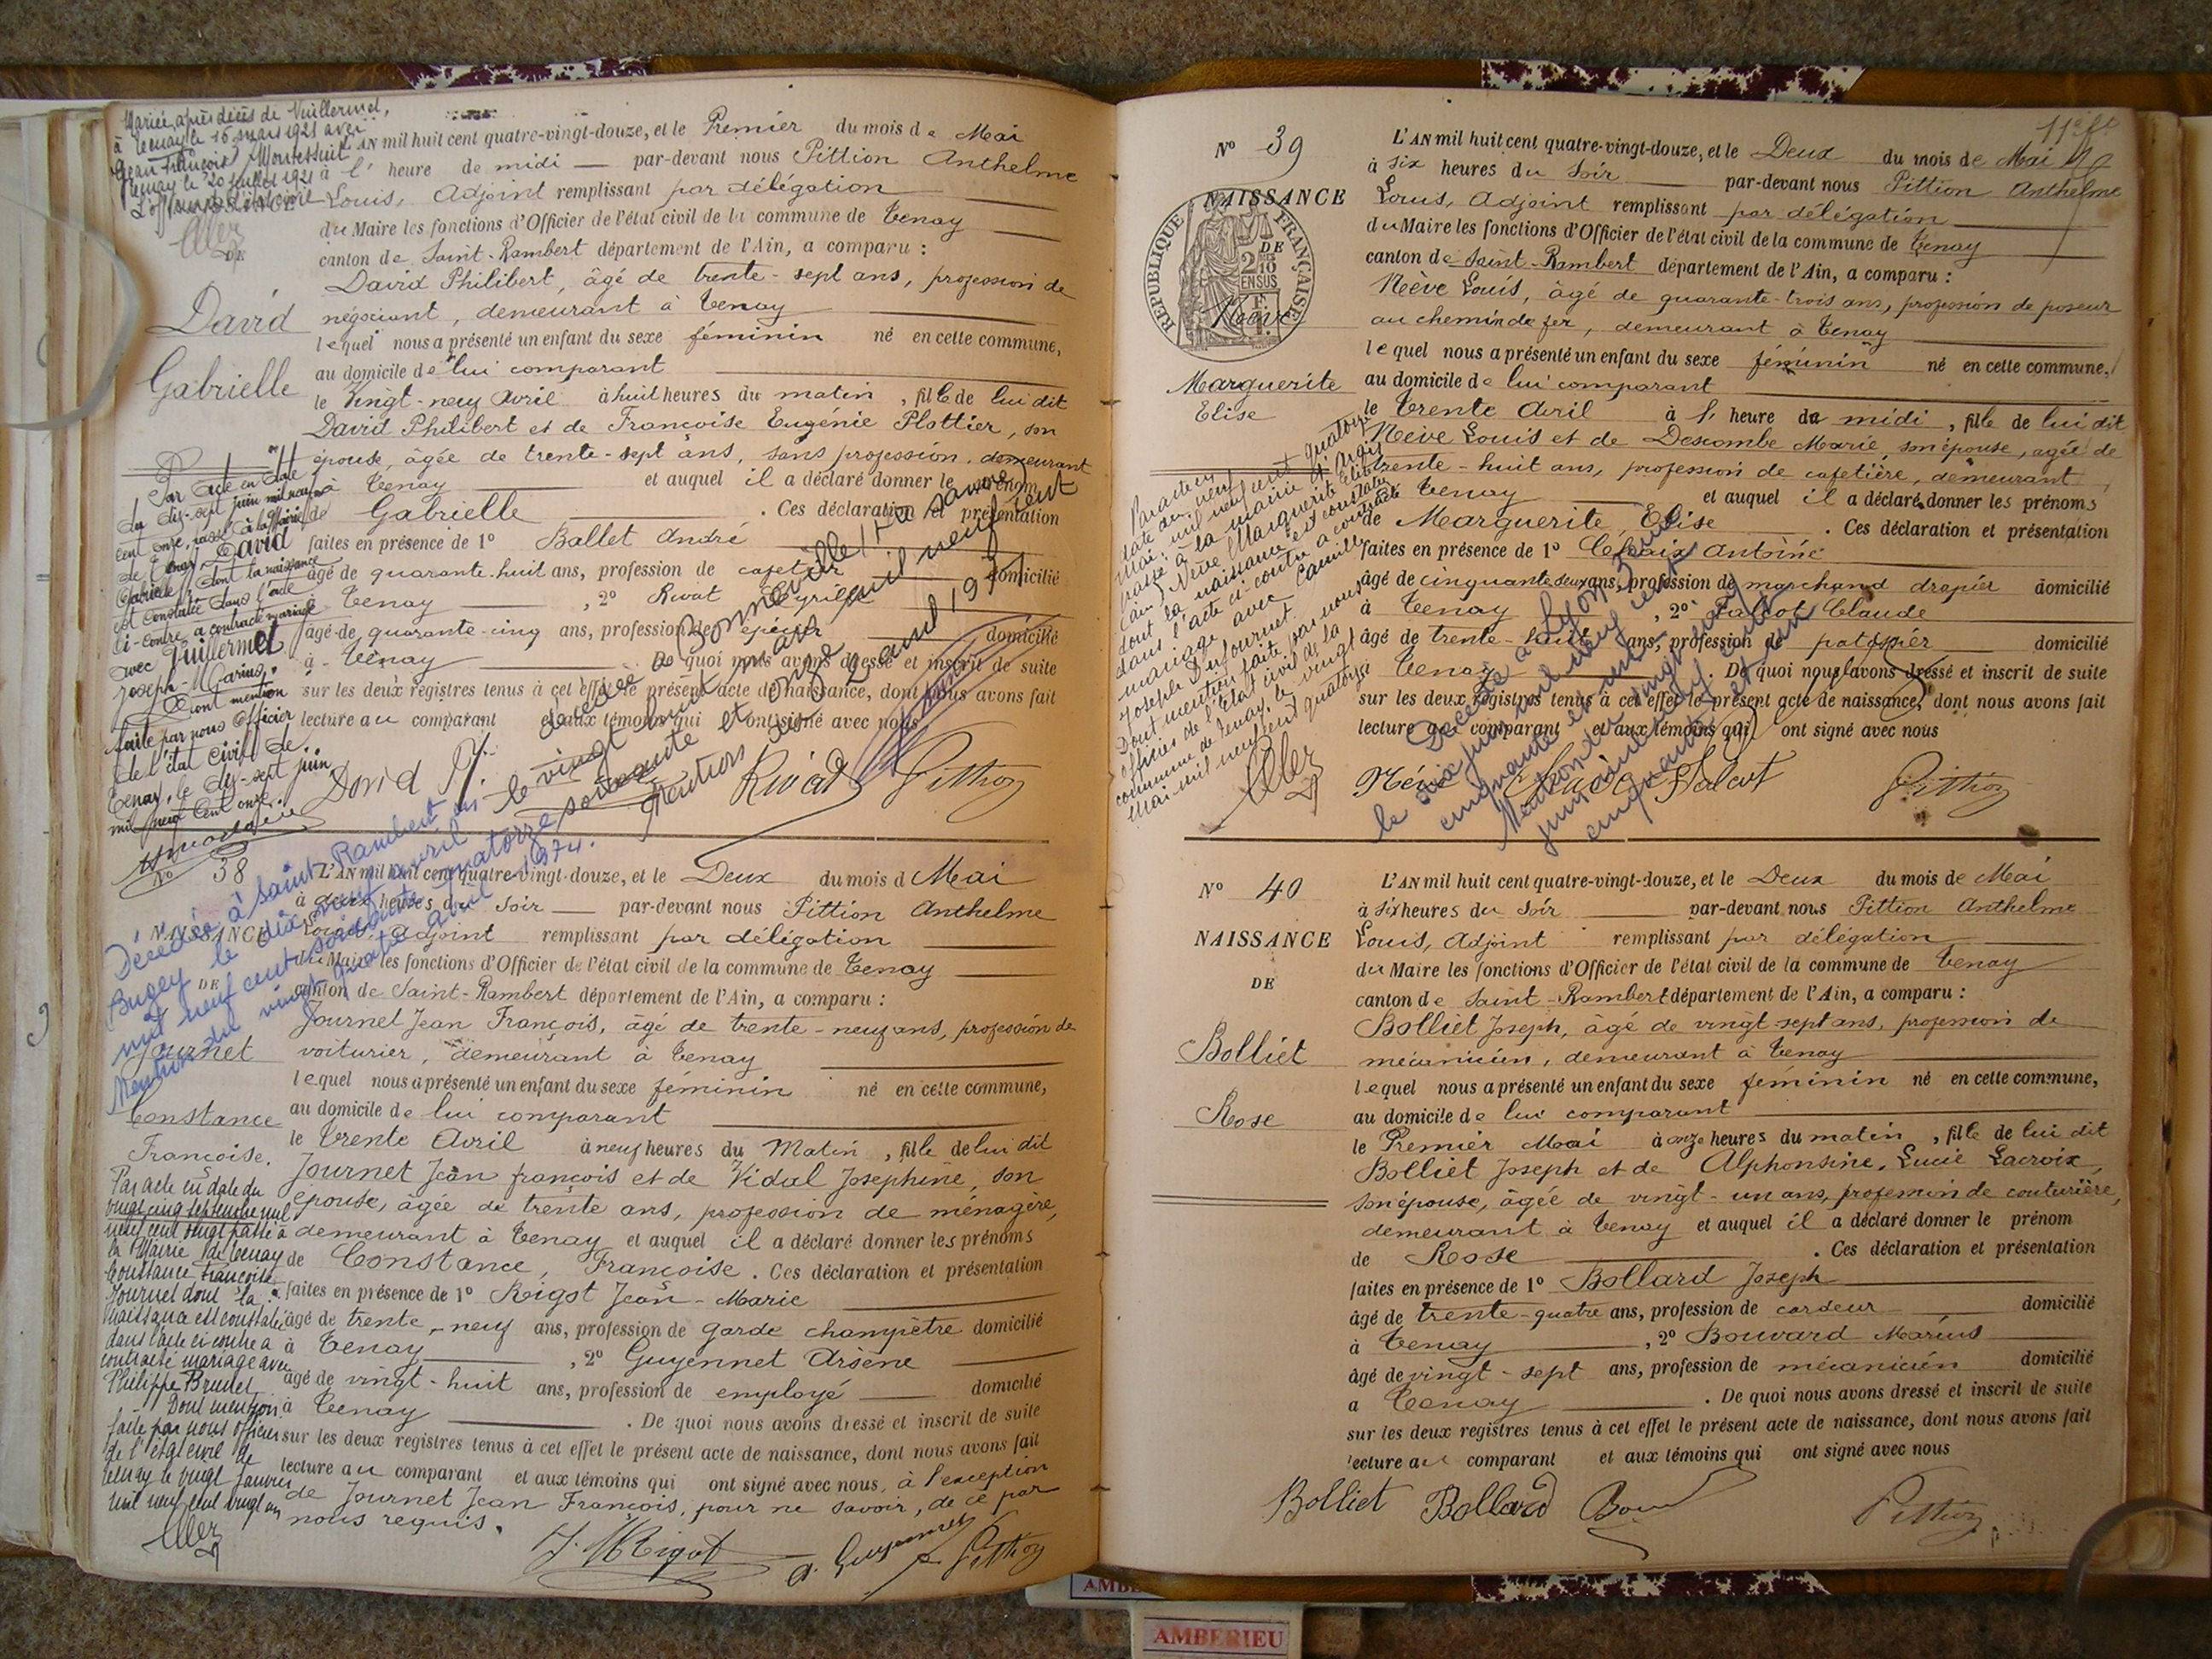 Mariée après décès de Vuillermet,
à Tenay le 16 mars 1921 avec
Jean François Montessuit
Tenay le 20 juillet 1921
L'officier de l'état civil
DE
David
Gabrielle
L'AN mil huit cent quatre-vingt-douze, et le Premier du mois de Mai
à l' heure de midi — par-devant nous Pittion Anthelme
Louis, Adjoint remplissant par délégation
du Maire les fonctions d'Officier de l'état civil de la commune de Tenay
canton de Saint-Rambert département de l'Ain, a comparu :
David Philibert, âgé de trente-sept ans, profession de
négociant, demeurant à Tenay
lequel nous a présenté un enfant du sexe féminin né en cette commune,
au domicile de lui comparant
le Vingt-neuf Avril à huit heures du matin, fille de lui dit
David Philibert et de Françoise Eugénie Plottier, son
épouse, âgée de trente-sept ans, sans profession, demeurant
à Tenay et auquel il a déclaré donner le prénom
de Gabrielle . Ces déclaration et présentation
faites en présence de 1º Ballet André
âgé de quarante-huit ans, profession de cafetier domicilié
à Tenay , 2º Rivat Cyrille
âgé de quarante-cinq ans, profession de épicier domicilié
à Tenay . De quoi nous avons dressé et inscrit de suite
sur les deux registres tenus à cet effet le présent acte de naissance, dont nous avons fait
lecture au comparant et aux témoins qui ont signé avec nous
Par acte en date
du dix-sept juin mil neuf
cent onze, passé à la Mairie
de Tenay, David
Gabrielle dont la naissance
est constatée dans l'acte
ci-contre a contracté mariage
avec Vuillermet
Joseph-Marius.
Dont mention
faite par nous Officier
de l'état civil de
Tenay, le dix-sept juin
mil neuf cent onze.
décédée à Bonneville (Hte Savoie)
le vingt huit mars mil neuf cent
soixante et onze
Mention du 2 avril 1971
David P. Rivat Pittion
Nº 38
NAISSANCE
DE
Journet
Constance
Françoise.
Décédée à Saint Rambert en
Bugey le dix neuf avril
mil neuf cent soixante quatorze
Mention du vingt quatre avril 1974.
L'AN mil huit cent quatre-vingt-douze, et le Deux du mois d Mai
à deux heures du Soir — par-devant nous Pittion Anthelme
Louis, Adjoint remplissant par délégation
du Maire les fonctions d'Officier de l'état civil de la commune de Tenay
canton de Saint-Rambert département de l'Ain, a comparu :
Journet Jean François, âgé de trente-neuf ans, profession de
voiturier, demeurant à Tenay
lequel nous a présenté un enfant du sexe féminin né en cette commune,
au domicile de lui comparant
le Trente Avril à neuf heures du Matin, fille de lui dit
Journet Jean françois et de Vidal Josephine, son
épouse, âgée de trente ans, profession de ménagère,
demeurant à Tenay et auquel il a déclaré donner les prénoms
de Constance, Françoise. Ces déclaration et présentation
faites en présence de 1º Rigot Jean-Marie
âgé de trente-neuf ans, profession de garde champêtre domicilié
à Tenay , 2º Guyennet Arsène
âgé de vingt-huit ans, profession de employé domicilié
à Tenay . De quoi nous avons dressé et inscrit de suite
sur les deux registres tenus à cet effet le présent acte de naissance, dont nous avons fait
lecture au comparant et aux témoins qui ont signé avec nous, à l'exception
de Journet Jean François, pour ne savoir, de ce par
nous requis.
Par acte en date du
vingt cinq septembre mil
neuf cent vingt passé à
la Mairie de Tenay
Constance Françoise
Journet dont la
naissance est constatée
dans l'acte ci contre a
contracté mariage avec
Philippe Brunet
Dont mention
faite par nous officier
de l'état civil de
Tenay le vingt janvier
mil neuf cent vingt un
J. M Rigot A. Guyennet Pittion
Nº 39
NAISSANCE
DE
REPUBLIQUE FRANÇAISE
Nève
Marguerite
Elise
L'AN mil huit cent quatre-vingt-douze, et le Deux du mois de Mai
à six heures du Soir par-devant nous Pittion Anthelme
Louis, Adjoint remplissant par délégation
du Maire les fonctions d'Officier de l'état civil de la commune de Tenay
canton de Saint-Rambert département de l'Ain, a comparu :
Nève Louis, âgé de quarante-trois ans, profession de poseur
au chemin de fer, demeurant à Tenay
lequel nous a présenté un enfant du sexe féminin né en cette commune,
au domicile de lui comparant
le Trente Avril à l' heure de midi, fille de lui dit
Nève Louis et de Descombe Marie, son épouse, agée de
trente-huit ans, profession de cafetière, demeurant
à Tenay et auquel il a déclaré donner les prénoms
de Marguerite, Elise . Ces déclaration et présentation
faites en présence de 1º Chaix Antoine
âgé de cinquante deux ans, profession de marchand drapier domicilié
à Tenay , 2º Falcot Claude
âgé de trente-huit ans, profession de domicilié
à Tenay . De quoi nous avons dressé et inscrit de suite
sur les deux registres tenus à cet effet le présent acte de naissance, dont nous avons fait
lecture au comparant et aux témoins qui ont signé avec nous
Par acte en
date du neuf
Mai mil neuf cent quatorze
passé à la mairie d'Argis
(Ain) Nève Marguerite Elise
dont la naissance est constatée
dans l'acte ci-contre a contracté
mariage avec Camille
Joseph Dufournet.
Dont mention faite par nous
officier de l'Etat civil de la
commune de Tenay, le vingt
Mai mil neuf cent quatorze
Décédée à Lyon
le six juin mil neuf cent
cinquante
Mention
Pittion
Nº 40
NAISSANCE
DE
Bolliet
Rose
L'AN mil huit cent quatre-vingt-douze, et le Deux du mois de Mai
à six heures du Soir par-devant nous Pittion Anthelme
Louis, Adjoint remplissant par délégation
du Maire les fonctions d'Officier de l'état civil de la commune de Tenay
canton de Saint-Rambert département de l'Ain, a comparu :
Bolliet Joseph, âgé de vingt-sept ans, profession de
mécanicien, demeurant à Tenay
lequel nous a présenté un enfant du sexe féminin né en cette commune,
au domicile de lui comparant
le Premier Mai à onze heures du matin, fille de lui dit
Bolliet Joseph et de Alphonsine, Lucie Lacroix,
son épouse, âgée de vingt-un ans, profession de couturière,
demeurant à Tenay et auquel il a déclaré donner le prénom
de Rose . Ces déclaration et présentation
faites en présence de 1º Bollard Joseph
âgé de trente-quatre ans, profession de cardeur domicilié
à Tenay , 2º Bouvard Marius
âgé de vingt-sept ans, profession de mécanicien domicilié
a Tenay . De quoi nous avons dressé et inscrit de suite
sur les deux registres tenus à cet effet le présent acte de naissance, dont nous avons fait
lecture au comparant et aux témoins qui ont signé avec nous
Bolliet Bollard Pittion
AMBERIEU